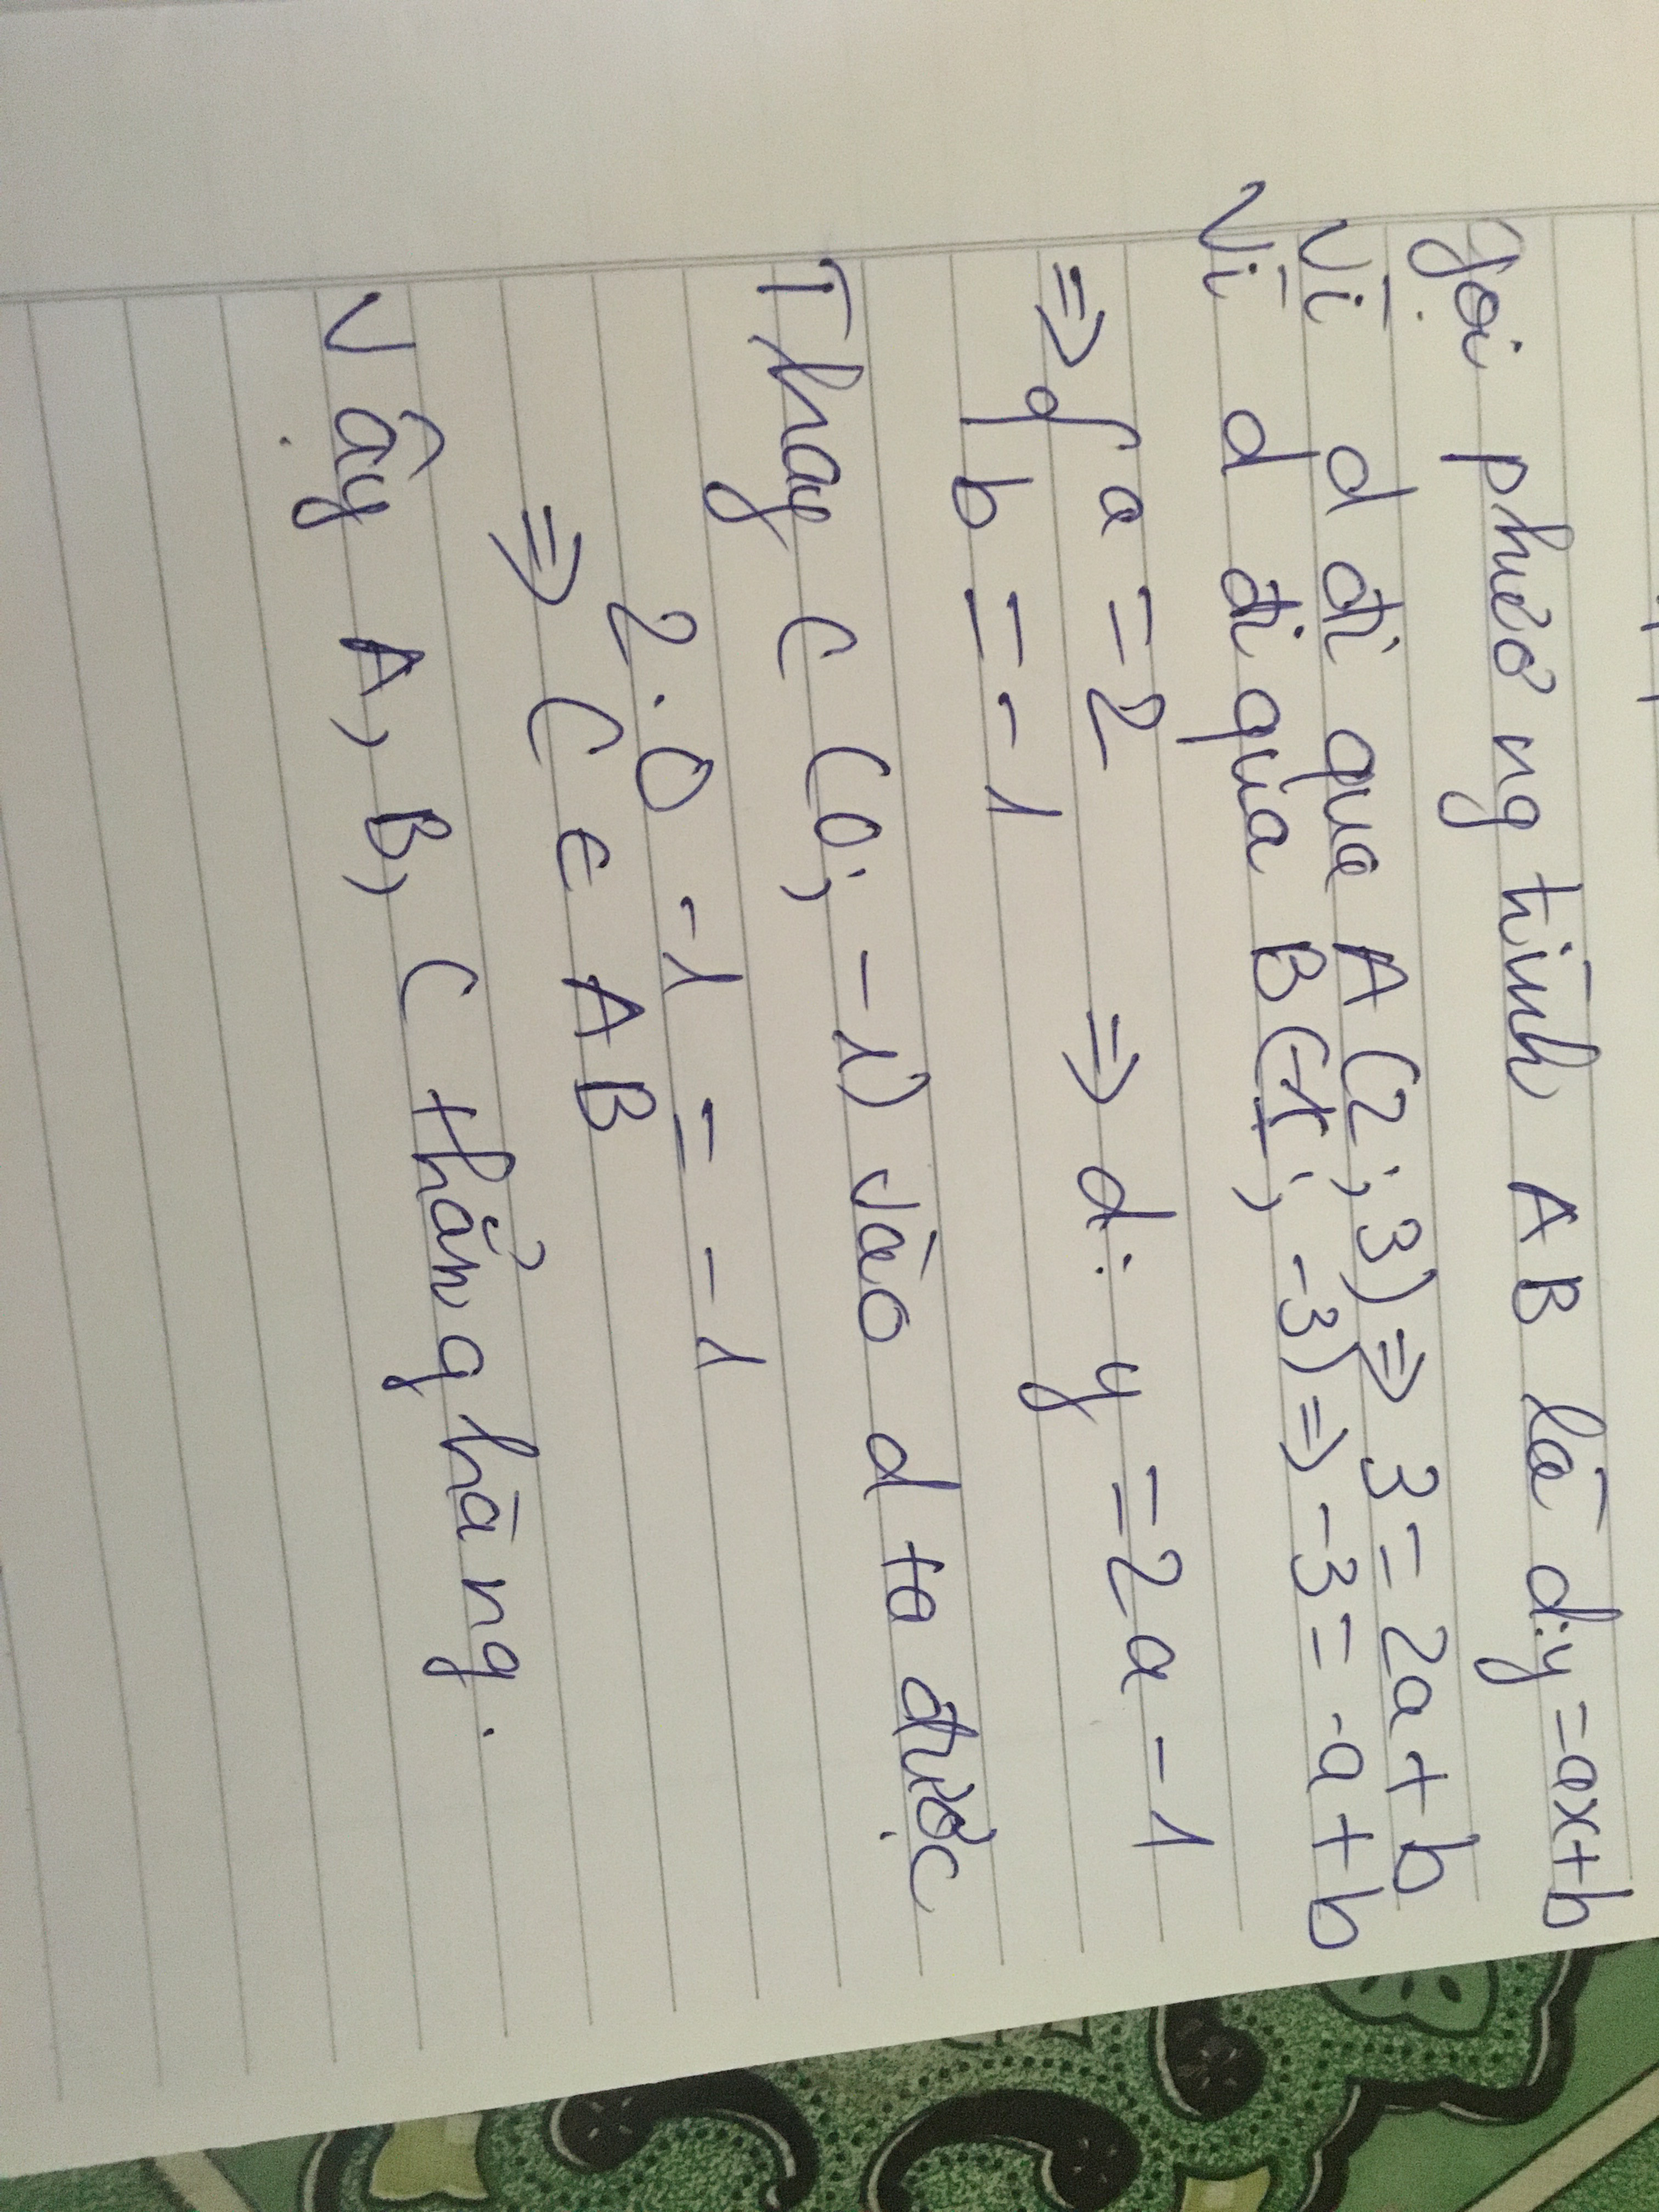 Gọi phương trình AB là d:y=ax+b
Vì d đi qua A (2; 3) => 3 = 2a + b
Vì d đi qua B(-1; -3) => -3 = -a + b
=> { a = 2
b = -1 => d: y = 2a - 1
Thay C (0; -1) vào d ta được
2.0 -1 = -1
=> C ∈ AB
Vậy A, B, C thẳng hàng.